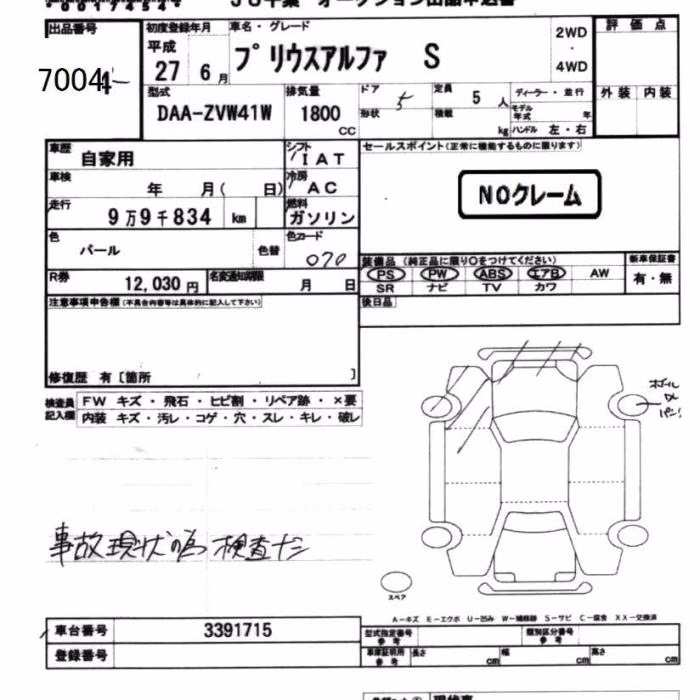 JU千葉 オークション出品申込書
出品番号
70041
初度登録年月
平成
27 6月
車名・グレード
プリウスアルファ S
2WD
・
4WD
評価点
外装 内装
型式
DAA-ZVW41W
排気量
1800
CC
ドア 5
形状
定員 5 人
積載 kg
ディーラー・並行
モデル年式 年
ハンドル 左・右
車歴 自家用
シフト IAT
車検 年 月( 日)
冷房 AC
走行 9万9千834 km
燃料 ガソリン
色 パール 色替
色カード 070
R券 12,030円
名変通知期限 月 日
セールスポイント(正常に機能するものに限ります)
NOクレーム
装備品(純正品に限り○をつけてください)
PS PW ABS エアB AW
SR ナビ TV カワ
新車保証書
有・無
後日品
注意事項申告欄(不具合内容等は具体的に記入して下さい)
修復歴 有〔箇所 〕
検査員記入欄
FW キズ・飛石・ヒビ割・リペア跡・×要
内装 キズ・汚レ・コゲ・穴・スレ・キレ・破レ
事故現状の為 検査ナシ
スペア
A-キズ E-エクボ U-凹み W-補修跡 S-サビ C-腐食 XX-交換済
車台番号 3391715
登録番号
型式指定番号 参考
類別区分番号 参考
車庫証明用 参考 長さ cm 幅 cm 高さ cm